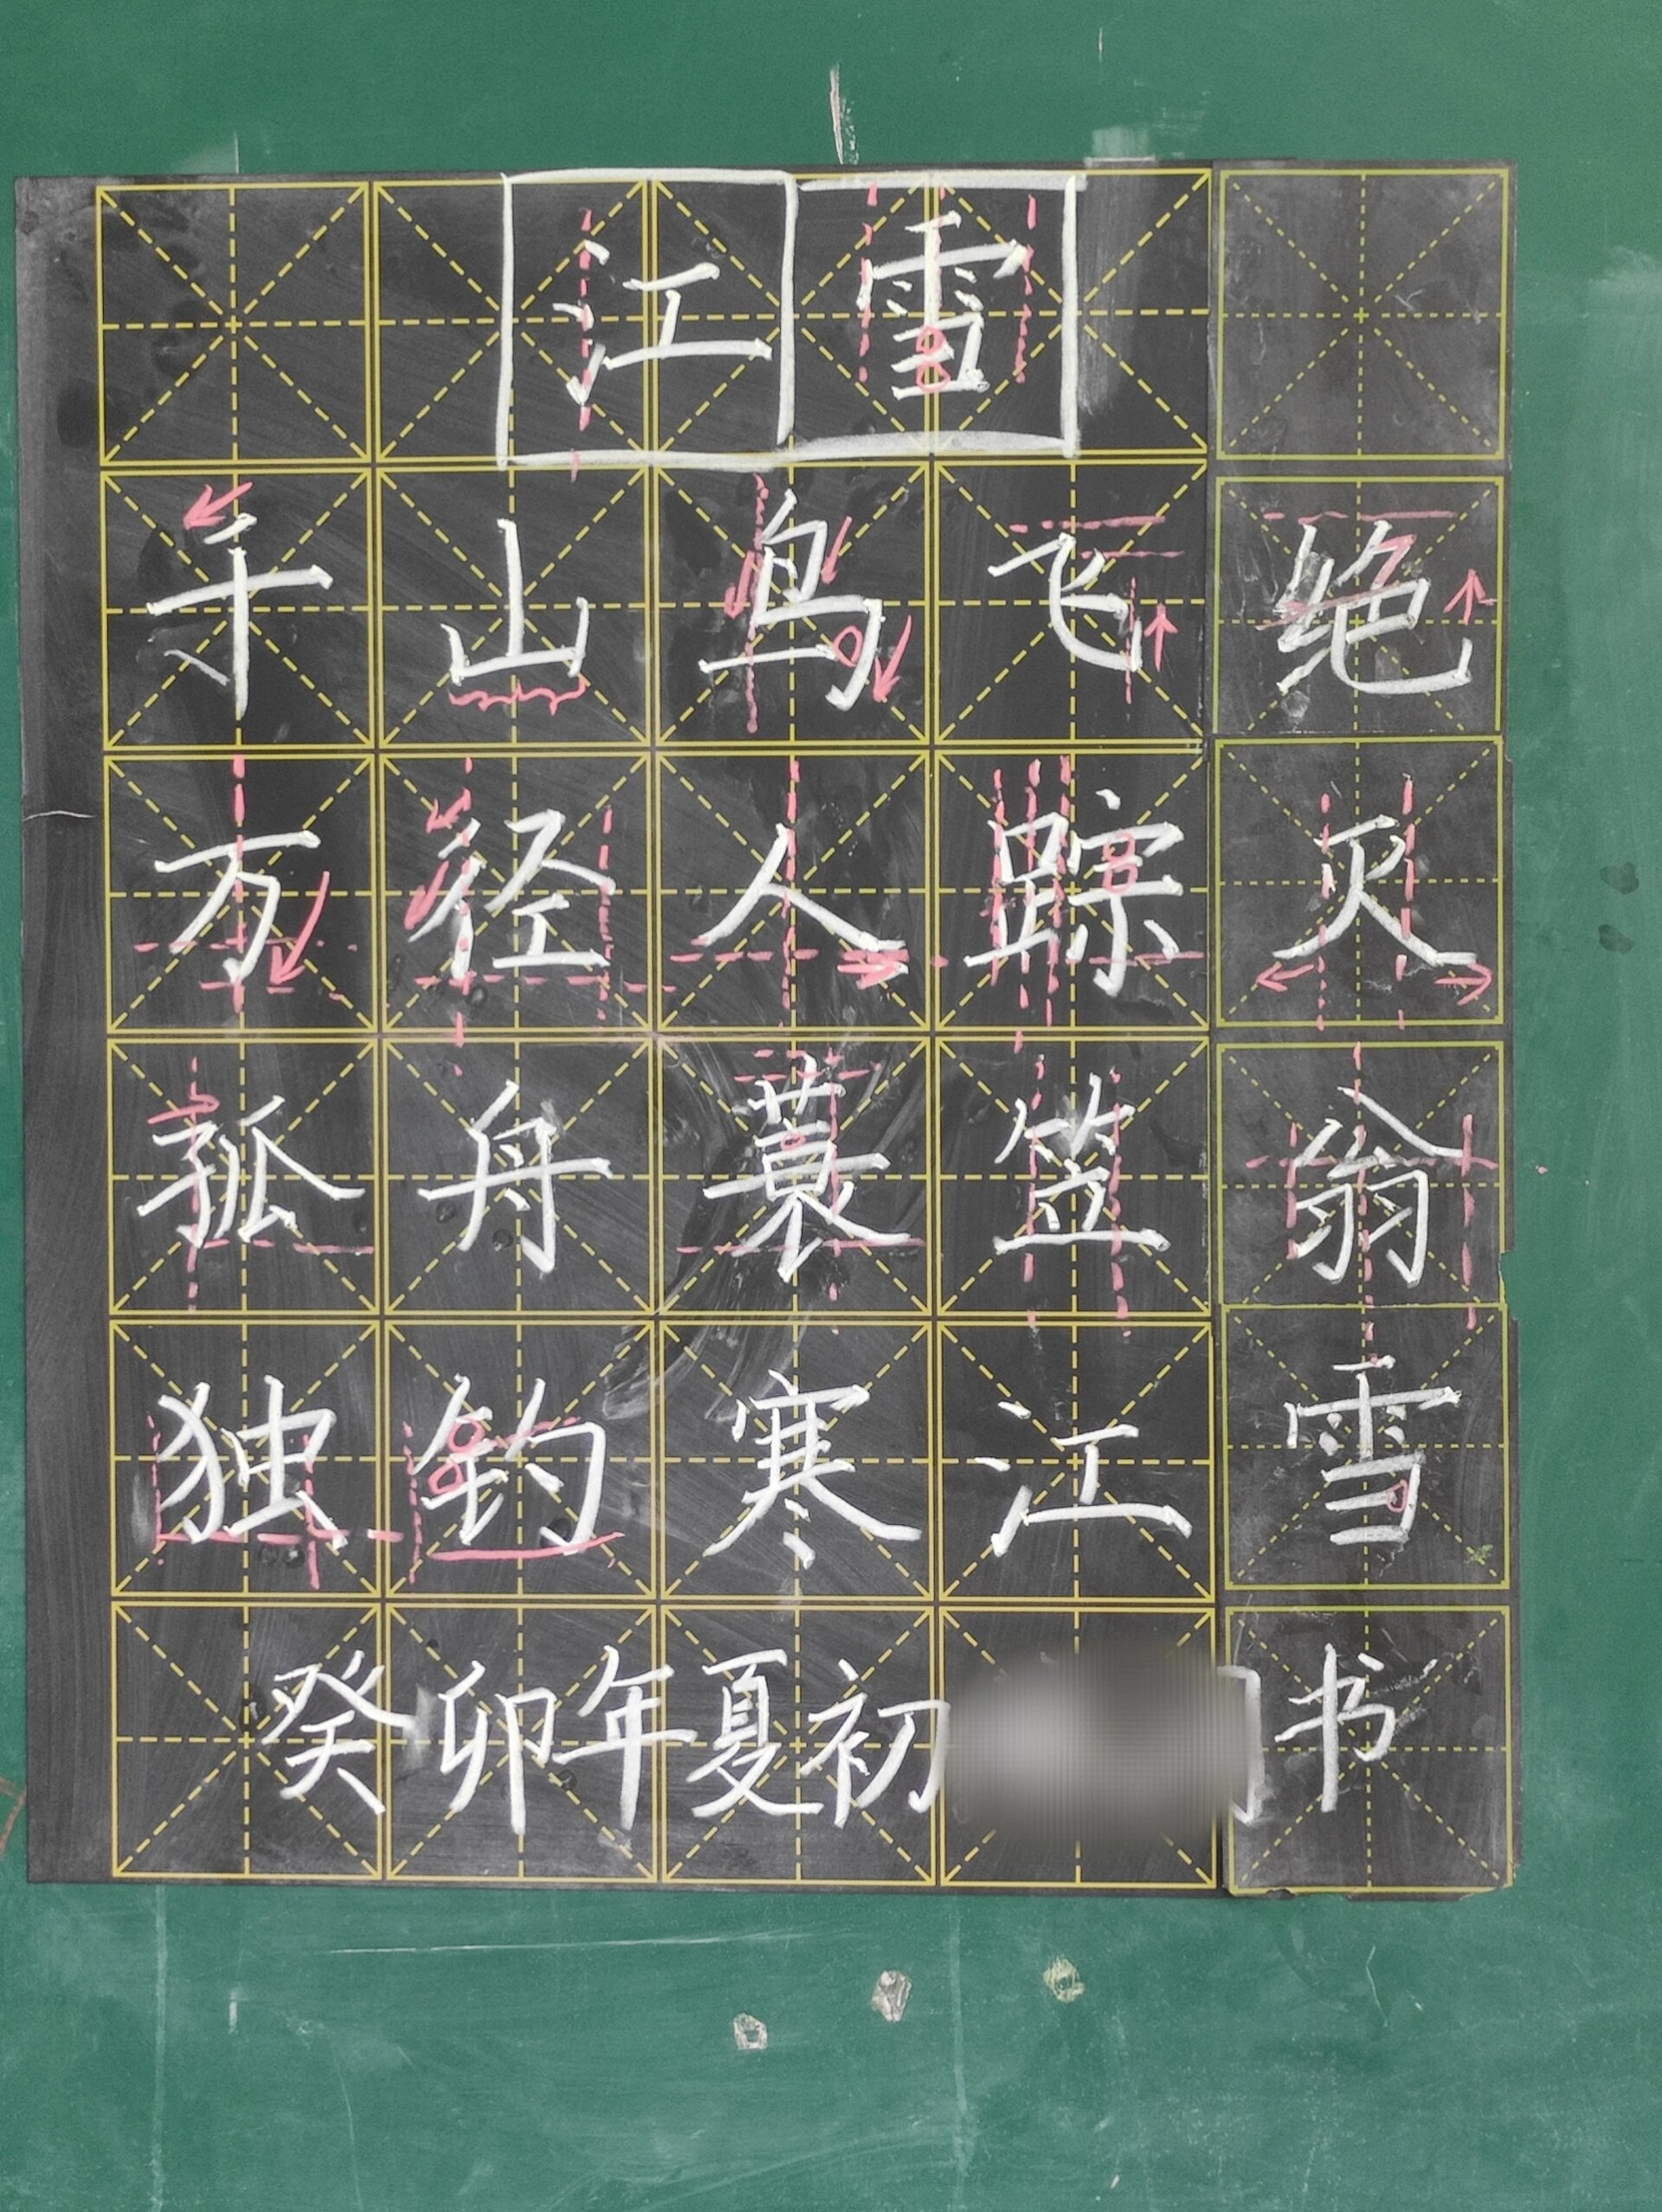 江雪
千山鸟飞绝
万径人踪灭
孤舟蓑笠翁
独钓寒江雪
癸卯年夏初 书